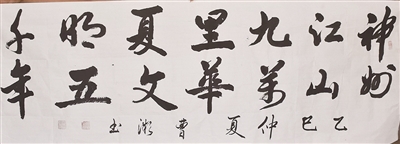 神州
江山
九萬
里華
夏文
明五
千年
乙巳仲夏曹书